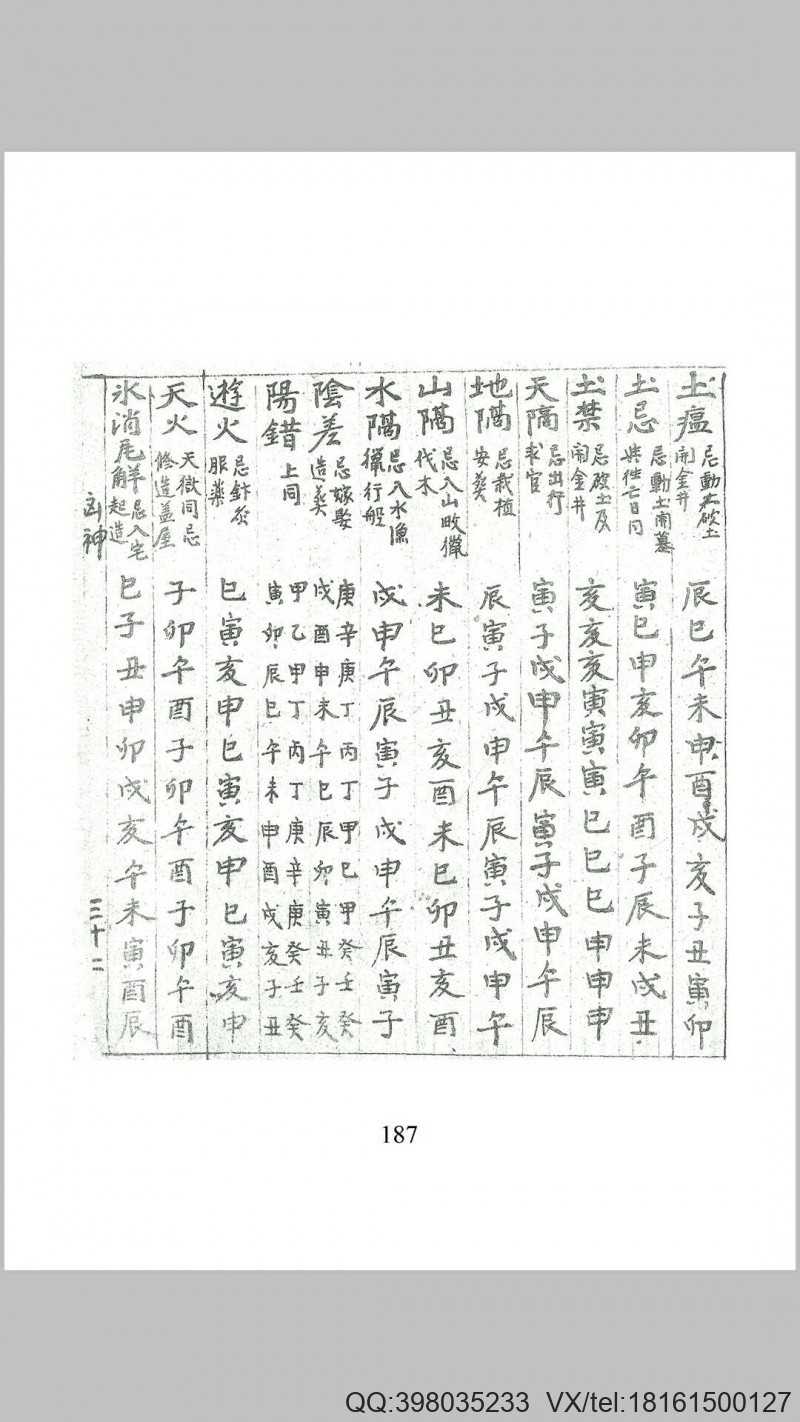 土瘟 忌動土破土開金井 辰巳午未申酉戌亥子丑寅卯
土忌 忌動土開墓與往亡日同 寅巳申亥卯午酉子辰未戌丑
土禁 忌破土及開金井 亥亥亥寅寅寅巳巳巳申申申
天隔 忌出行求官 寅子戌申午辰寅子戌申午辰
地隔 忌栽植安葬 辰寅子戌申午辰寅子戌申午
山隔 忌入山畋獵伐木 未巳卯丑亥酉未巳卯丑亥酉
水隔 忌入水漁獵行船 戌申午辰寅子戌申午辰寅子
陰差 忌嫁娶造葬 庚戌 辛酉 庚申 丁未 丙午 丁巳 甲辰 乙卯 甲寅 癸丑 壬子 癸亥
陽錯 上同 甲寅 乙卯 甲辰 丁巳 丙午 丁未 庚申 辛酉 庚戌 癸亥 壬子 癸丑
遊火 忌針灸服藥 巳寅亥申巳寅亥申巳寅亥申
天火 天獄同忌修造蓋屋 子卯午酉子卯午酉子卯午酉
氷消尾解 忌入宅起造 巳子丑申卯戌亥午未寅酉辰
凶神 三十二
187
QQ:398035233 VX/tel:18161500127